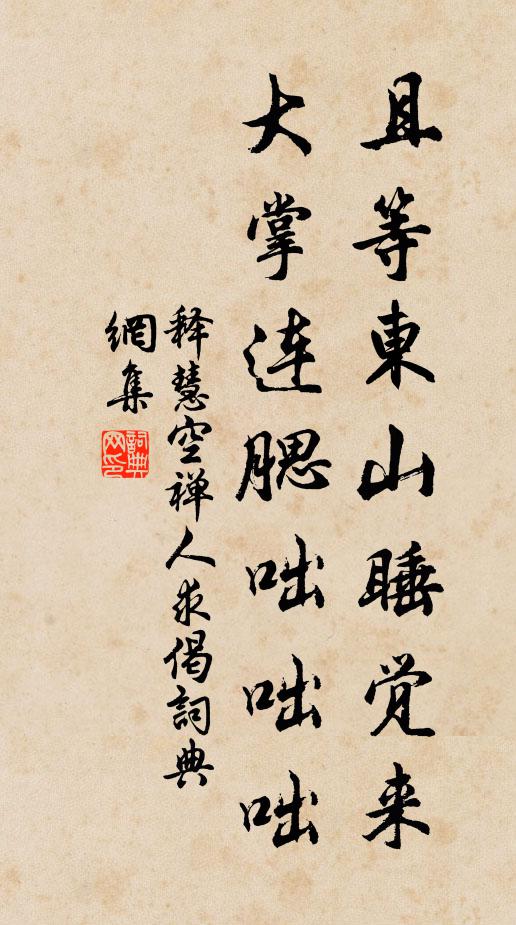 且等東山睡觉来
大掌连腮咄咄咄
释慧空禅人求偈詞典
網集
詞典網印